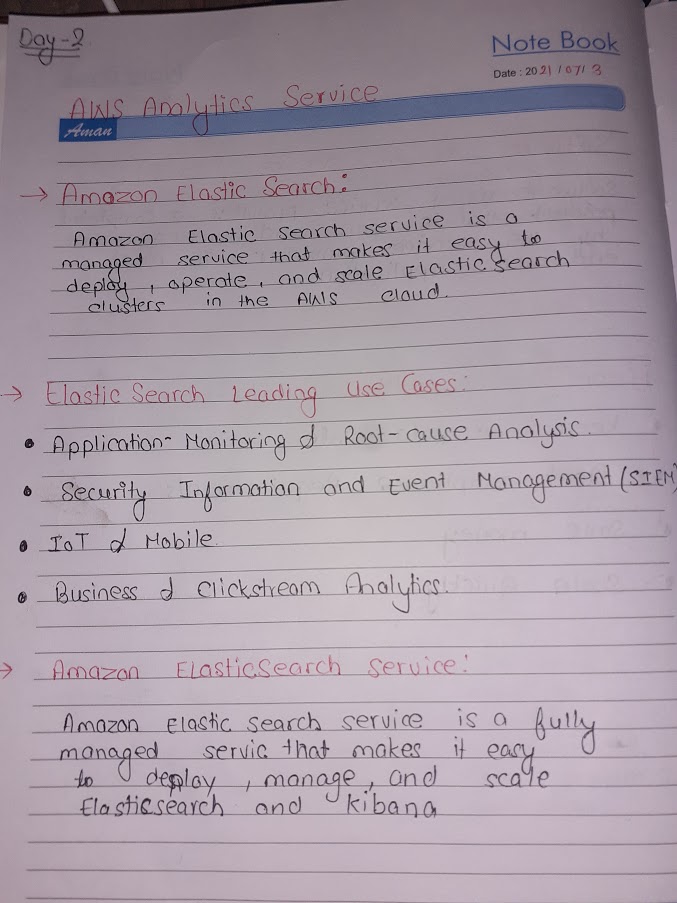 Day-2
Note Book
Date : 2021/07/3
AWS Analytics Service
Aman
→ Amazon Elastic Search:
Amazon Elastic search service is a
managed service that makes it easy to
deploy, operate, and scale Elastic Search
clusters in the AWS cloud.
→ Elastic Search Leading Use Cases:
• Application-Monitoring & Root-cause Analysis.
• Security Information and Event Management (SIEM)
• IoT & Mobile.
• Business & Clickstream Analytics.
→ Amazon ElasticSearch service:
Amazon Elastic search service is a fully
managed servic that makes it easy
to deploy, manage, and scale
Elasticsearch and Kibana